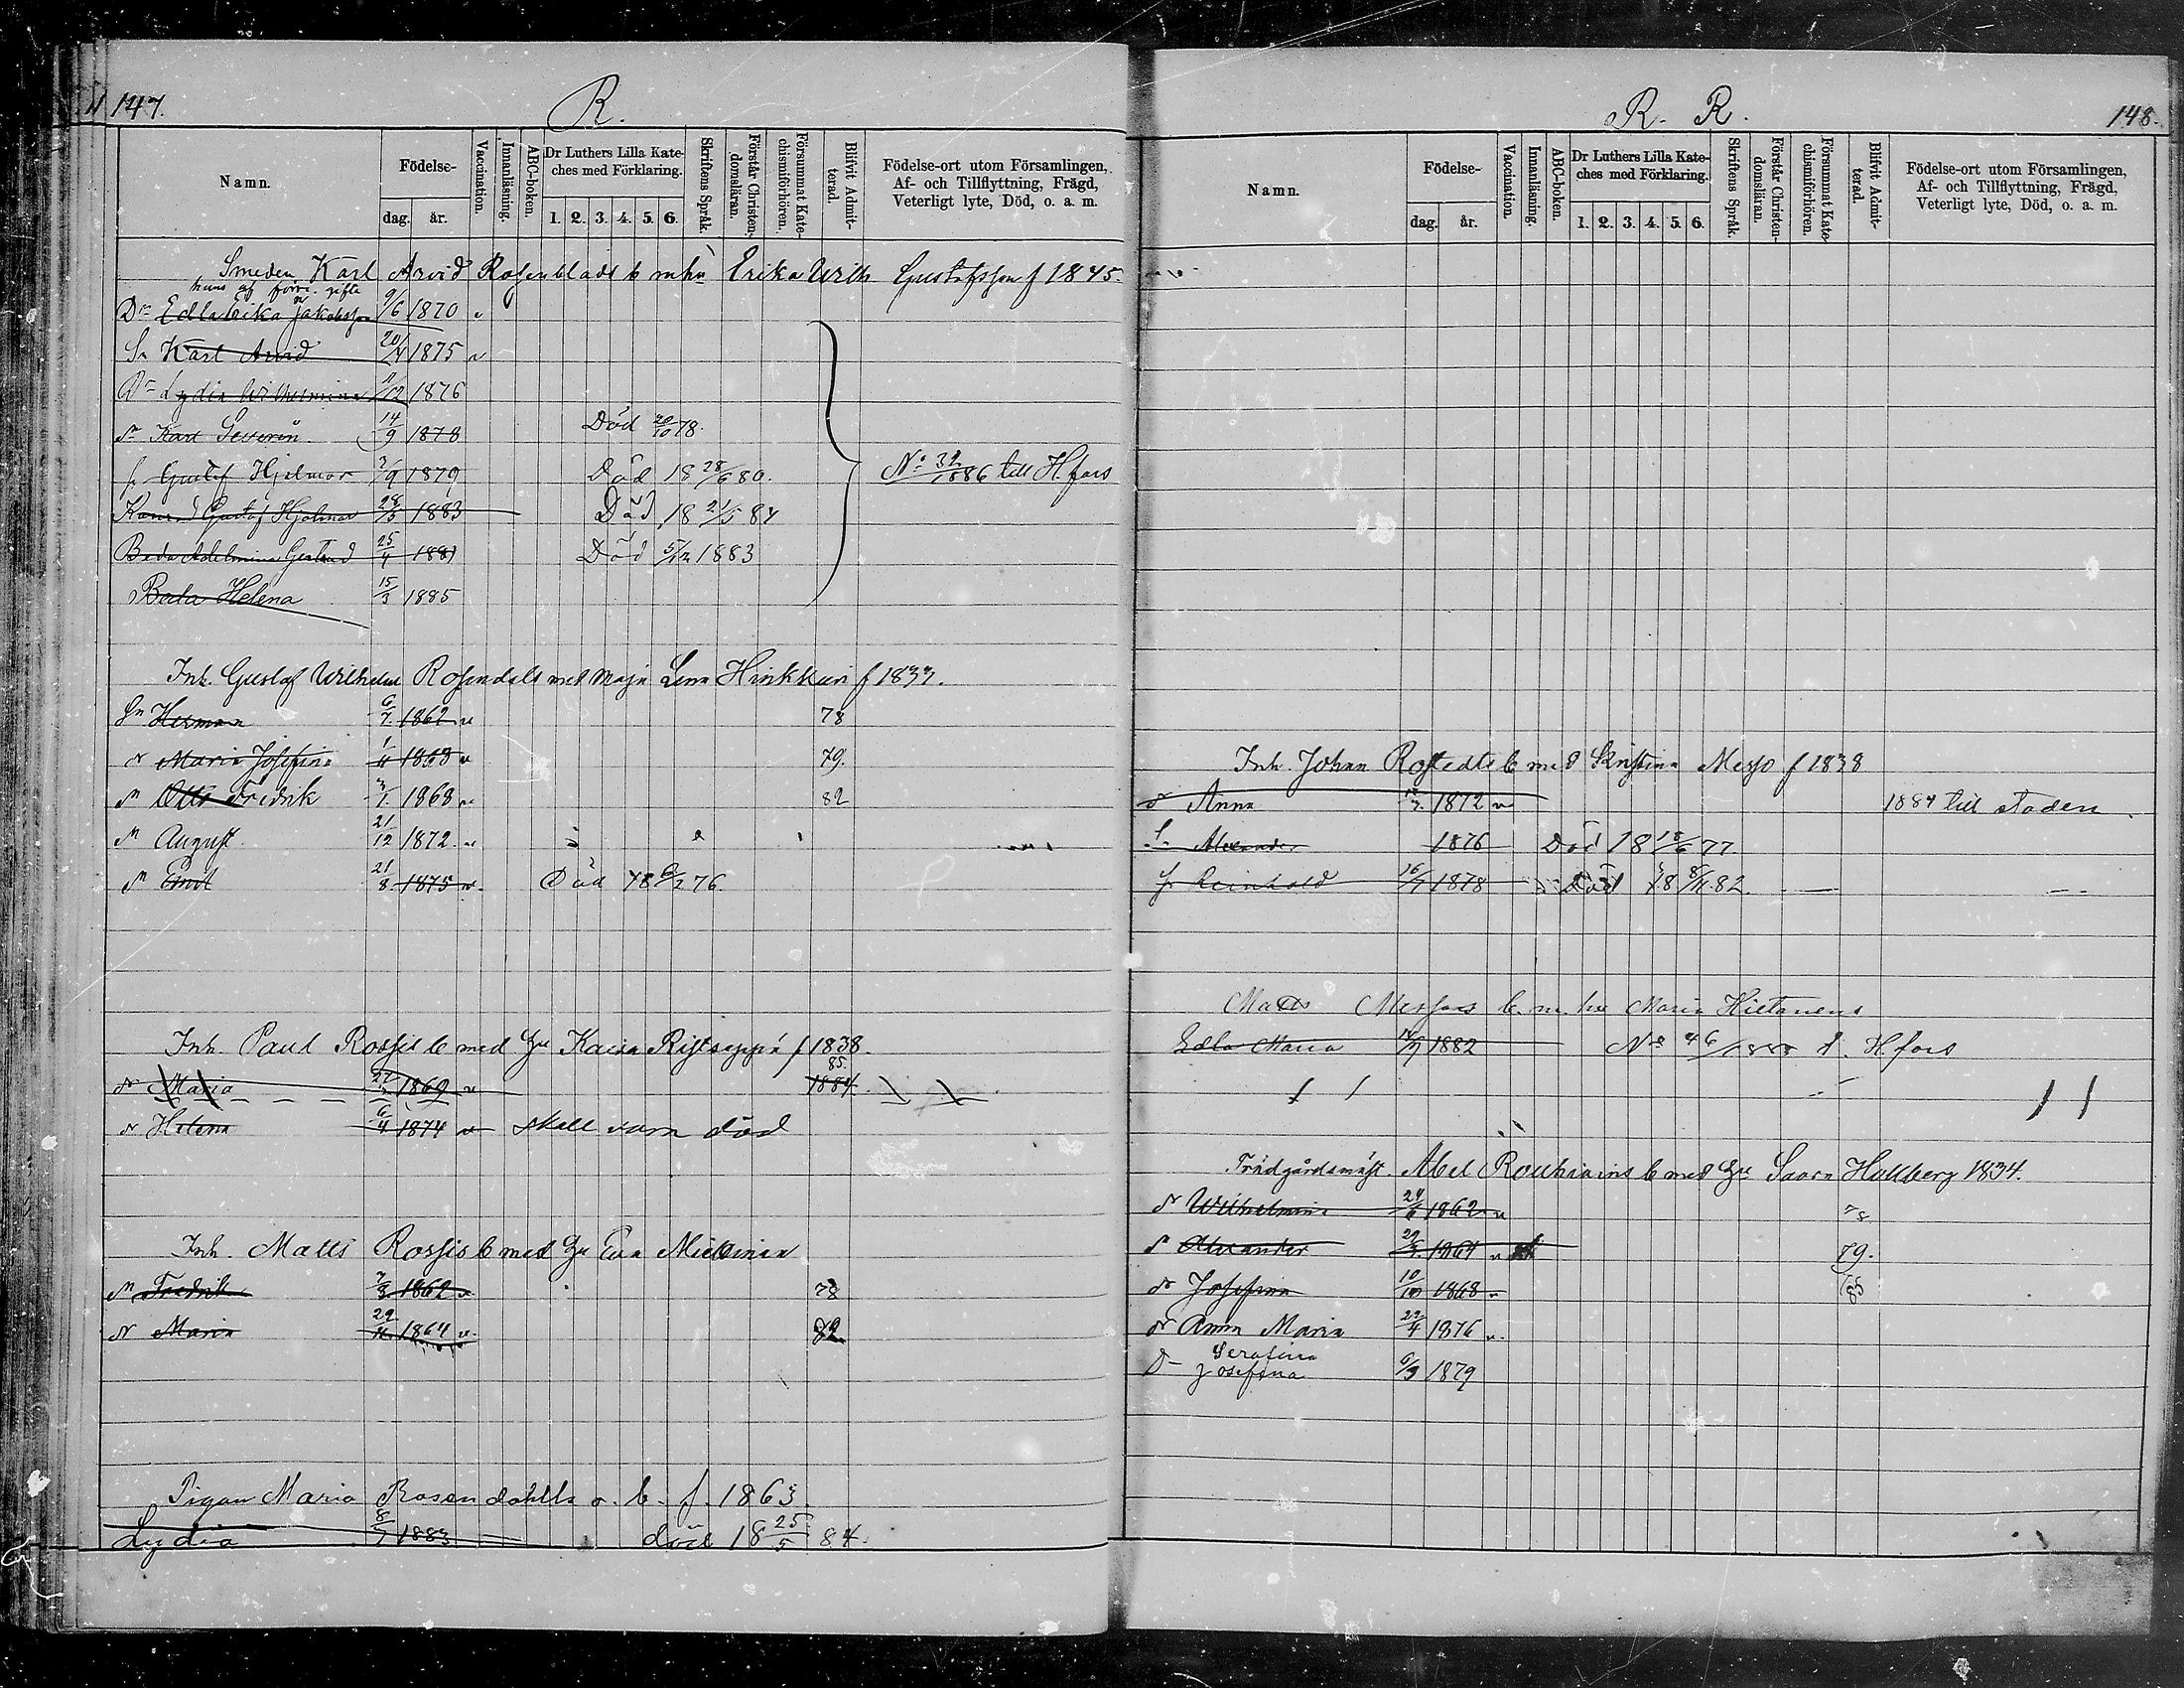 147.
R.
Namn.
Födelse-
dag. år.
Vaccination.
Innanläsning.
ABC-boken.
Dr Luthers Lilla Kate-
ches med Förklaring.
1. 2. 3. 4. 5. 6.
Skriftens Språk.
Förstår Christen-
domsläran.
Försummat Kate-
chismiförhören.
Blifvit Admit-
terad.
Födelse-ort utom Församlingen,
Af- och Tillflyttning, Frägd,
Veterligt lyte, Död, o. a. m.
Smeden Karl Arvid Rosenblads b m hu Erika Wilh Gustafsson f 1845
hans af förra gifte
Dr Edla Erika Jakobsson 9/6 1870
Sn Karl Arvid 20/4 1875
Dr Lydia Wilhelmina /12 1876
Sn Karl Severin 14/9 1878 Död 20/10 78.
Gustaf Hjalmar 3/9 1879 Död 18 28/6 80. No 32/1886 till H.fors
Konrad Gustaf Hjalmar 28/3 1883 Död 18 21/5 84
Beda Adelmina Gertrud 25/4 1881 Död 5/12 1883
Beda Helena 15/3 1885
Inh. Gustaf Wilhelm Rosendals med Maja Lena Hinkkuri f 1833.
Sn Herman 6/7 1862 78
Maria Josefina 1/11 1863 79.
Otto Fredrik 3/7 1868 82
August 21/12 1872
Emil 21/8 1875 Död 18 6/2 76.
Inh. Paul Rossis b med Hu Kaisa Ristseppä f 1838.
85.
Maria 1869 1884.
Helena 6/4 1874 skall vara död
Inh. Matts Rossis b med Hu Eva Mielonen
Fredrik 7/3 1862 78
Maria 29/11 1864 82
Pigan Maria Rosendahls o. b. f. 1863.
Lydia 8/7 1883 död 18 25/5 84.
R. R.
148.
Namn.
Födelse-
dag. år.
Vaccination.
Innanläsning.
ABC-boken.
Dr Luthers Lilla Kate-
ches med Förklaring.
1. 2. 3. 4. 5. 6.
Skriftens Språk.
Förstår Christen-
domsläran.
Försummat Kate-
chismiförhören.
Blifvit Admit-
terad.
Födelse-ort utom Församlingen,
Af- och Tillflyttning, Frägd,
Veterligt lyte, Död, o. a. m.
Inh. Johan Rostedts b med Kristina Messo f 1838
Anna 1872 1884 till staden
Alexander 1876 Död 18 18/6 77
Reinhold 16/7 1878 Död 18 8/11 82.
Matts Messos b. m. hu Maria Hietanens
Edla Maria 14/9 1882 No 46/1888 t. H.fors
Trädgårdsmäst. Abel Rouhiains b med Hu Saara Hallberg 1834.
Wilhelmina 24/6 1862 78
Alexander 29/9 1864 79.
Josefina 10/10 1868
Anna Maria 22/4 1876
Serafina
D Josefina 6/3 1879